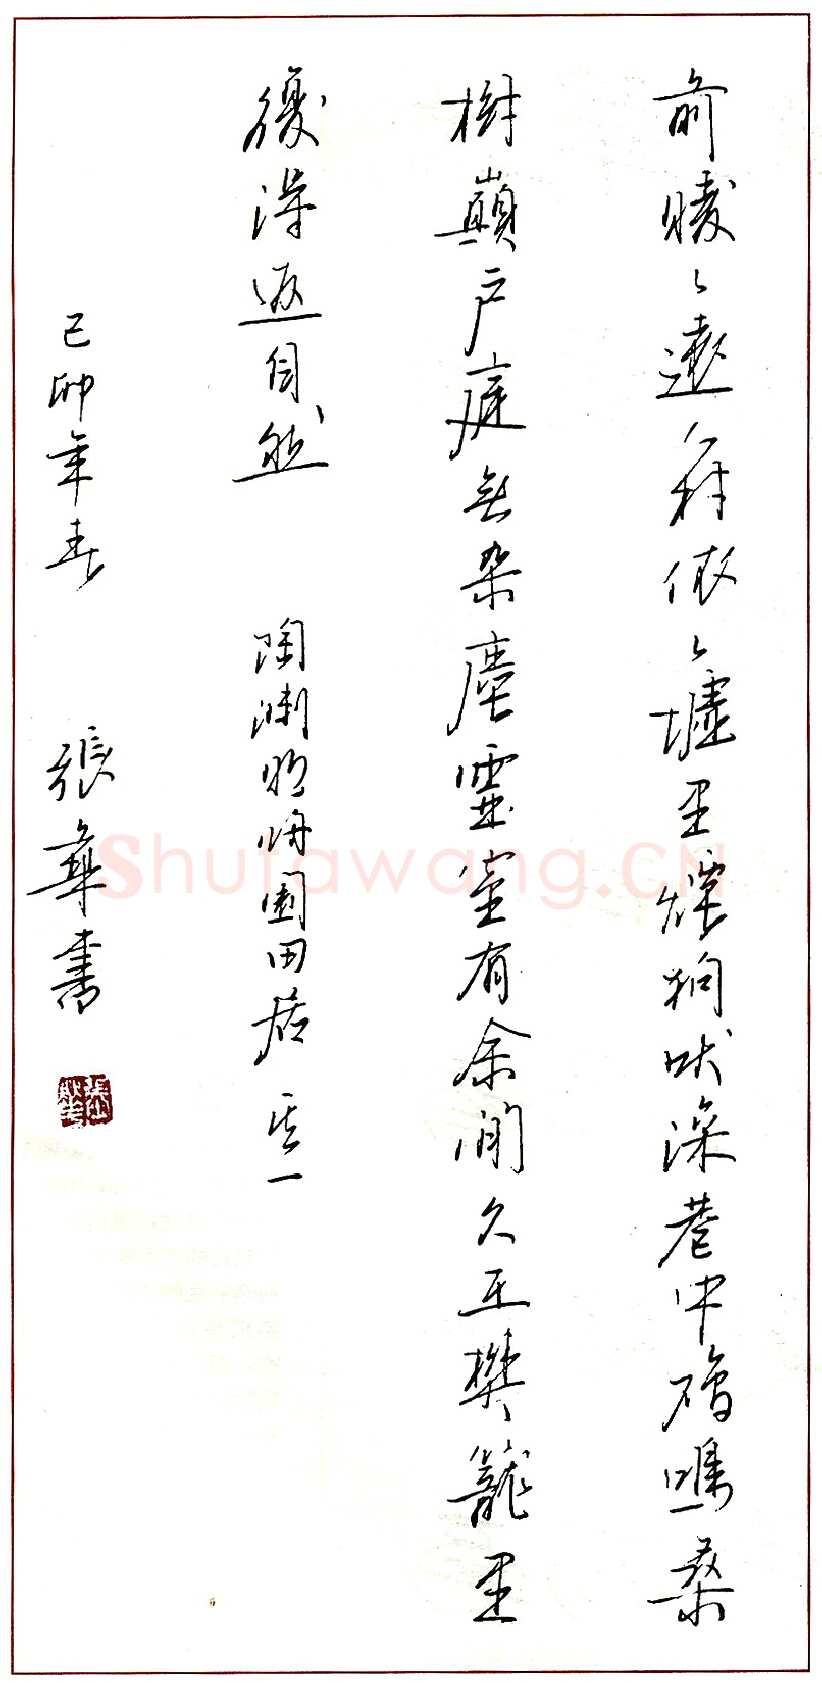 前曖々遠人村依々墟里煙狗吠深巷中雞鳴桑
樹巔户庭無杂塵虛室有余閒久在樊籠里
復得返自然 陶淵明歸園田居 其一
己卯年春 張華書
Shufawang.CN